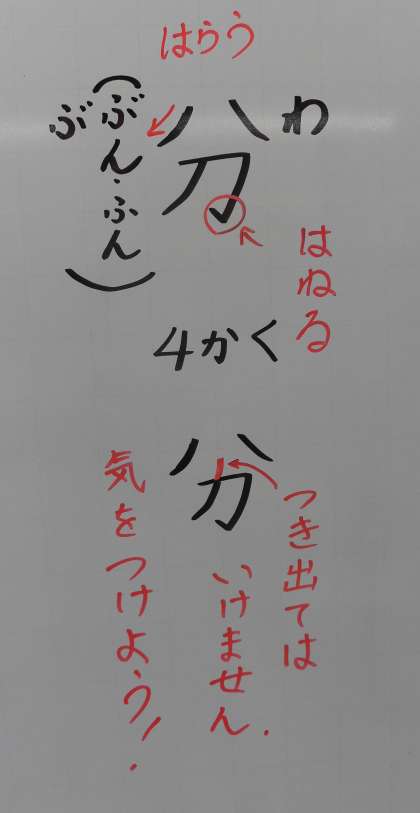 はらう
分
わ
(ぶん・ふん)
ぶ
はねる
4かく
分
つき出ては
いけません.
気をつけよう!